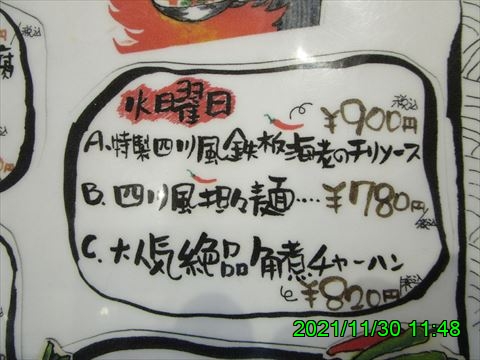 税込
腐
火曜日
税込
¥900円
A.特製四川風鉄板海老のチリソース
B.四川風担々麺....¥780円
税込
C.大人気絶品角煮チャーハン
¥820円
税込
2021/11/30 11:48